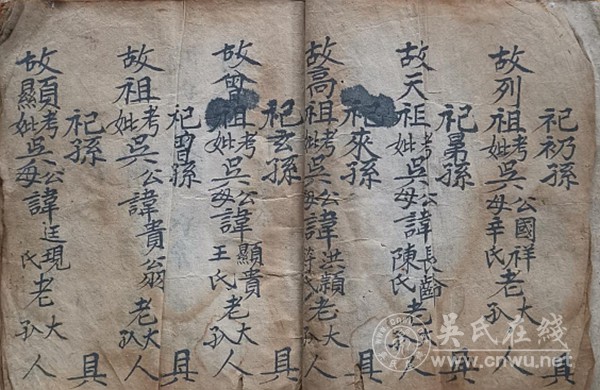 祀礽孫 具
故列祖考妣吳公母國祥辛氏老大人
祀晜孫 具
故天祖考妣吳公母諱長齡陳氏老大人
祀來孫 具
故高祖考妣吳公母諱洪穎氏老大人
祀玄孫 具
故曾祖考妣吳公母諱顯貴王氏老大人
祀曾孫 具
故祖考妣吳公母諱貴翁老大人
祀孫 具
故顯考妣吳公母諱廷現氏老大人
吳氏在线
www.cnwu.net